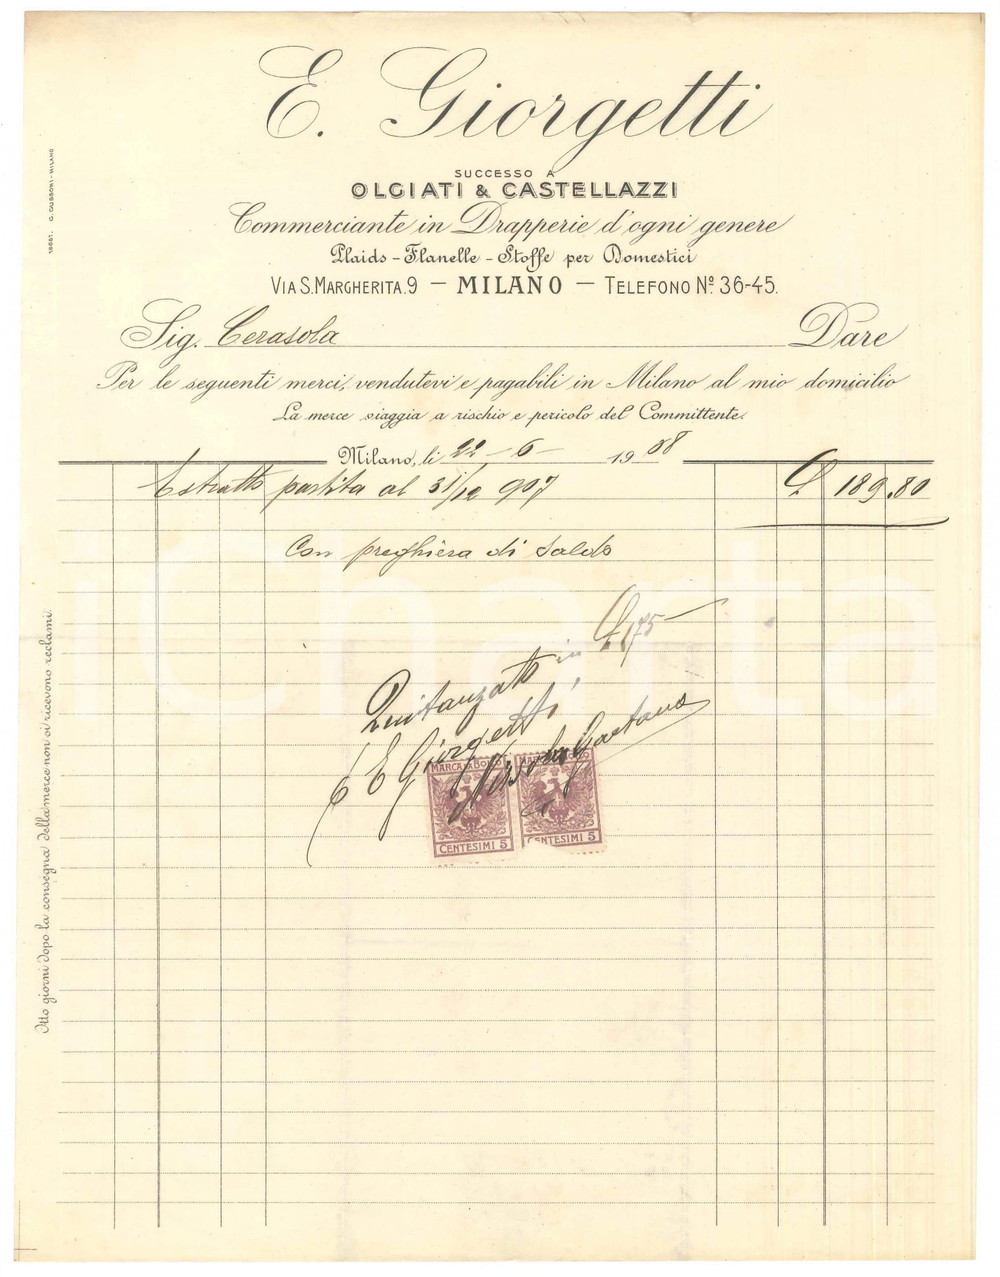 E. Giorgetti
SUCCESSO A
OLGIATI & CASTELLAZZI
Commerciante in Drapperie d'ogni genere
Plaids - Flanelle - Stoffe per Domestici
VIA S. MARGHERITA. 9 — MILANO — TELEFONO Nº 36-45.
Sig. Cerasola Dare
Per le seguenti merci, vendutevi e pagabili in Milano al mio domicilio
La merce viaggia a rischio e pericolo del Committente.
Milano, li 22 - 6 - 1908
Estratto partita al 31/12 907 £ 189.80
Con preghiera di saldo
Quitanzato in £ 175 —
E Giorgetti
Gaetano
MARCA DA BOLLO MARCA DA BOLLO
CENTESIMI 5 CENTESIMI 5
Otto giorni dopo la consegna della merce non si ricevono reclami.
18667. G. GUSSONI - MILANO
iCharta